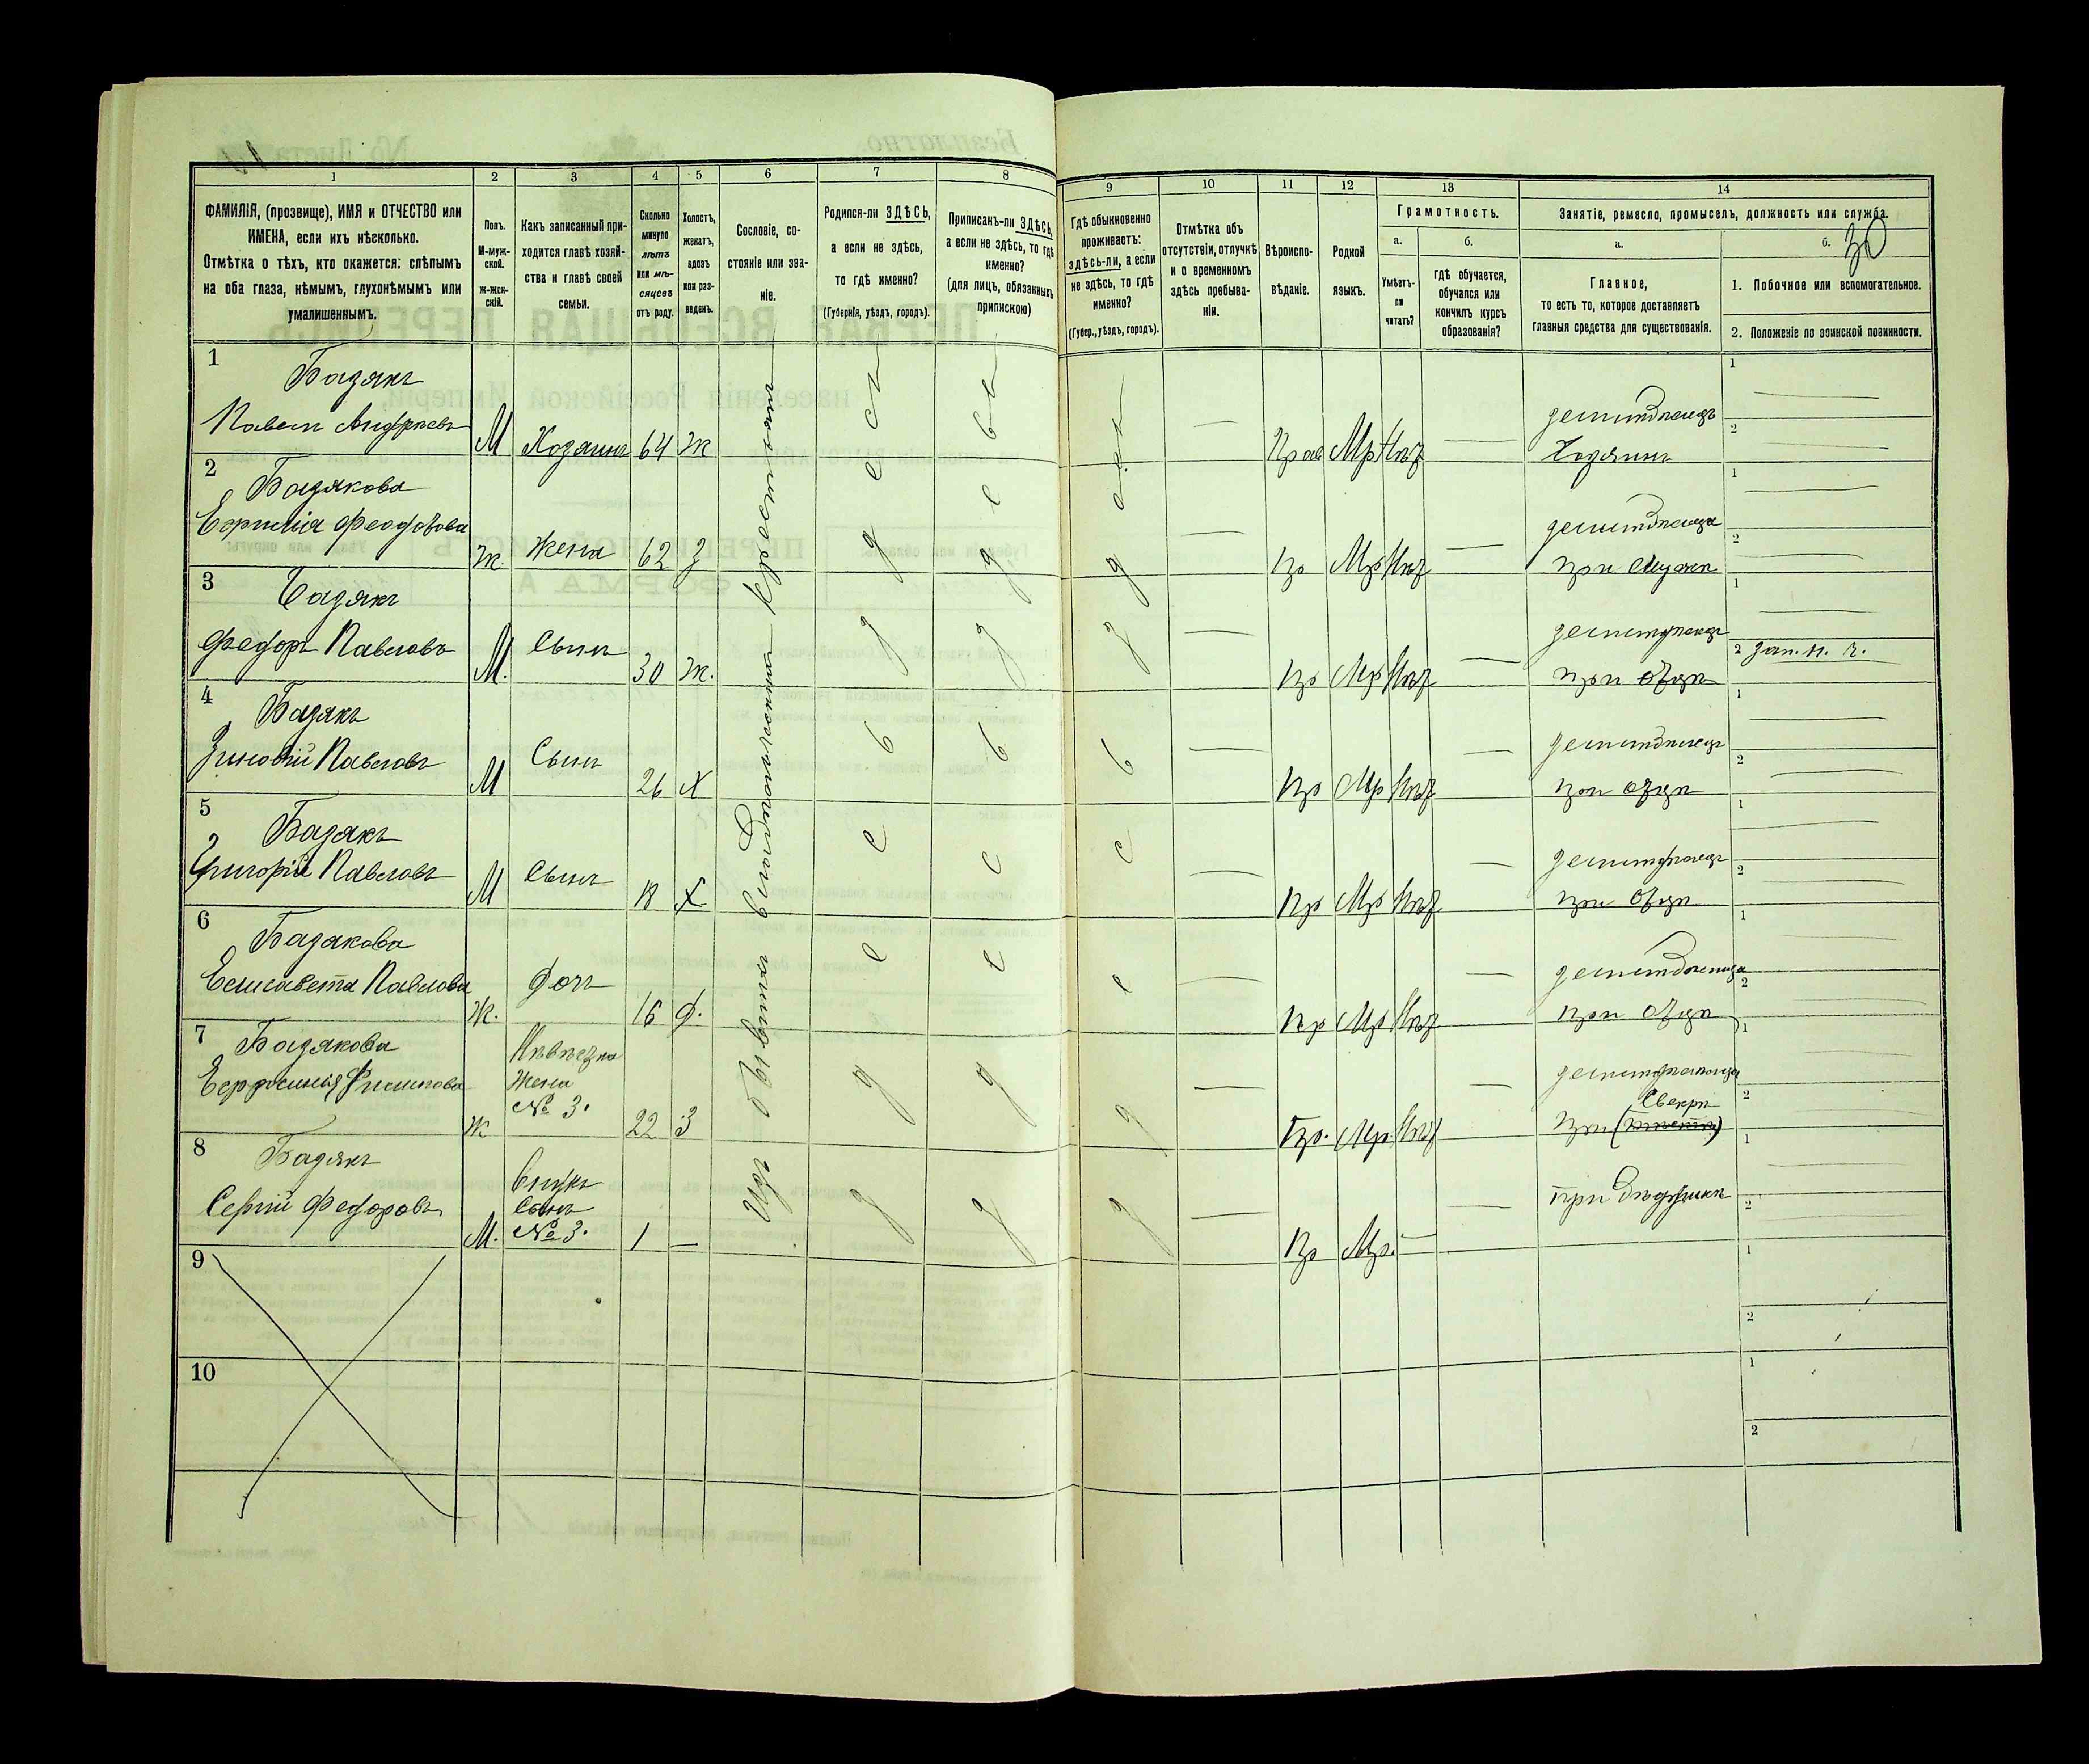 1 2 3 4 5 6 7 8 9 10 11 12 13 14
ФАМИЛІЯ, (прозвище), ИМЯ и ОТЧЕСТВО или
ИМЕНА, если ихъ нѣсколько.
Отмѣтка о тѣхъ, кто окажется: слѣпымъ
на оба глаза, нѣмымъ, глухонѣмымъ или
умалишеннымъ.
Полъ.
М-муж-
ской.
Ж-жен-
скій.
Какъ записанный при-
ходится главѣ хозяй-
ства и главѣ своей
семьи.
Сколько
минуло
лѣтъ
или мѣ-
сяцевъ
отъ роду.
Холостъ,
женатъ,
вдовъ
или раз-
веденъ.
Сословіе, со-
стояніе или зва-
ніе.
Родился-ли ЗДѢСЬ,
а если не здѣсь,
то гдѣ именно?
(Губернія, уѣздъ, городъ).
Приписанъ-ли ЗДѢСЬ,
а если не здѣсь, то гдѣ
именно?
(для лицъ, обязанныхъ
припискою)
Гдѣ обыкновенно
проживаетъ:
здѣсь-ли, а если
не здѣсь, то гдѣ
именно?
(Губер., уѣздъ, городъ).
Отмѣтка объ
отсутствіи, отлучкѣ
и о временномъ
здѣсь пребыва-
ніи.
Вѣроиспо-
вѣданіе.
Родной
языкъ.
Грамотность.
а.
Умѣетъ-
ли
читать?
б.
гдѣ обучается,
обучался или
кончилъ курсъ
образованія?
Занятіе, ремесло, промыселъ, должность или служба.
30
а.
Главное,
то есть то, которое доставляетъ
главныя средства для существованія.
б.
1. Побочное или вспомогательное.
2. Положеніе по воинской повинности.
Изъ бывшихъ владѣльческихъ крестьянъ
здѣсь
здѣсь
здѣсь
1
Бадякъ
Павелъ Андреевъ М Хозяинъ 64 Ж — Прав Мр Нѣт —
земледѣлецъ
Хозяинъ
1
2
2
Бадякова
Ефимія Феодотова Ж. Жена 62 З — Пр Мр Нѣт —
при мужѣ
1
2
3
Бадякъ
Федоръ Павловъ М. Сынъ 30 Ж. — Пр Мр Нѣт —
земледѣлецъ
при отцѣ
1
2 зап. н. ч.
4
Бадякъ
Зиновій Павловъ М Сынъ 26 Х — Пр Мр Нѣт —
земледѣлецъ
при отцѣ
1
2
5
Бадякъ
Григорій Павловъ М Сынъ 18 Х — Пр Мр Нѣт —
земледѣлецъ
при отцѣ
1
2
6
Бадякова
Елисавета Павлова Ж. Дочь 16 Д. — Пр Мр Нѣт —
при отцѣ
1
2
7
Бадякова
Евфросинія Филипова Ж
Невѣстка
Жена
№ 3.
22 З — Пр. Мр Нѣт —
при
Свекрѣ
1
2
8
Бадякъ
Сергій Федоровъ М.
Внукъ
Сынъ
№ 3.
1 — — Пр Мр. — —
при дѣдушкѣ
1
2
9
1
2
10
1
2